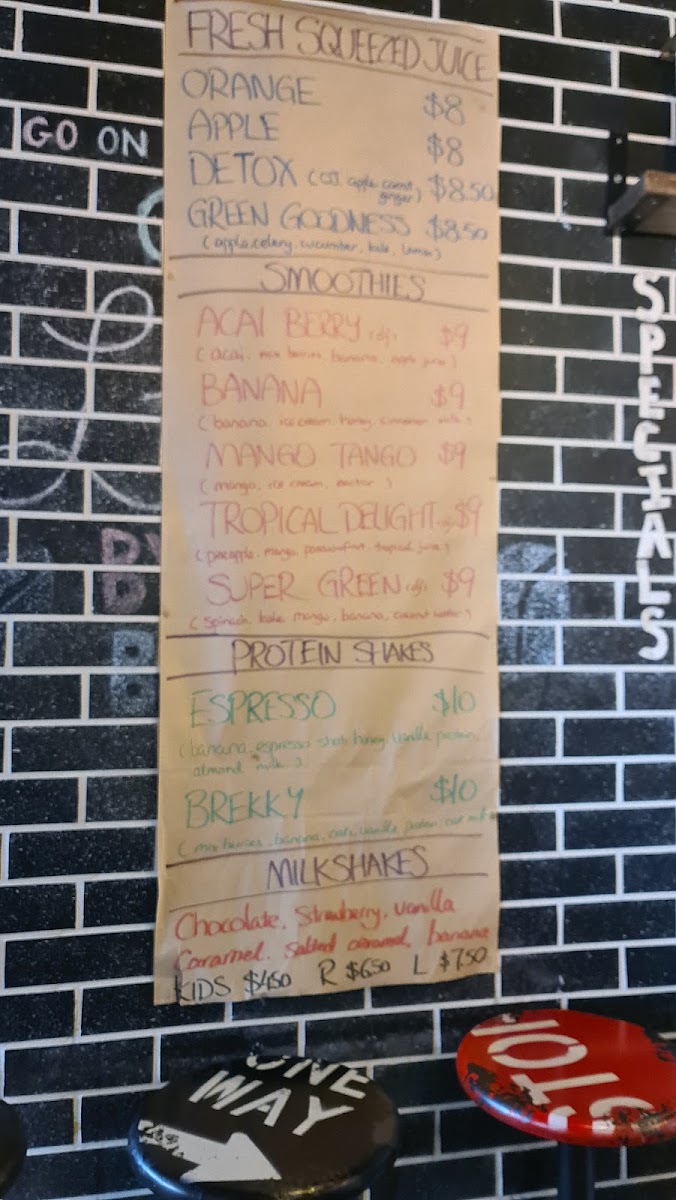 FRESH SQUEEZED JUICE
ORANGE $8
APPLE $8
DETOX (OJ, apple, carrot, ginger) $8.50
GREEN GOODNESS $8.50
(apple, celery, cucumber, kale, lemon)
SMOOTHIES
ACAI BERRY (df) $9
(acai, mix berries, banana, apple juice)
BANANA $9
(banana, ice cream, honey, cinnamon, milk)
MANGO TANGO $9
(mango, ice cream, nectar)
TROPICAL DELIGHT $9
(pineapple, mango, passionfruit, tropical juice)
SUPER GREEN (df) $9
(spinach, kale, mango, banana, coconut water)
PROTEIN SHAKES
ESPRESSO $10
(banana, espresso shot, honey, vanilla protein,
almond milk)
BREKKY $10
(mix berries, banana, oats, vanilla protein, oat milk
MILKSHAKES
Chocolate, Strawberry, Vanilla
Caramel, Salted caramel, banana
KIDS $4.50 R $6.50 L $7.50
GO ON
SPECIALS
ONE
WAY
STOP